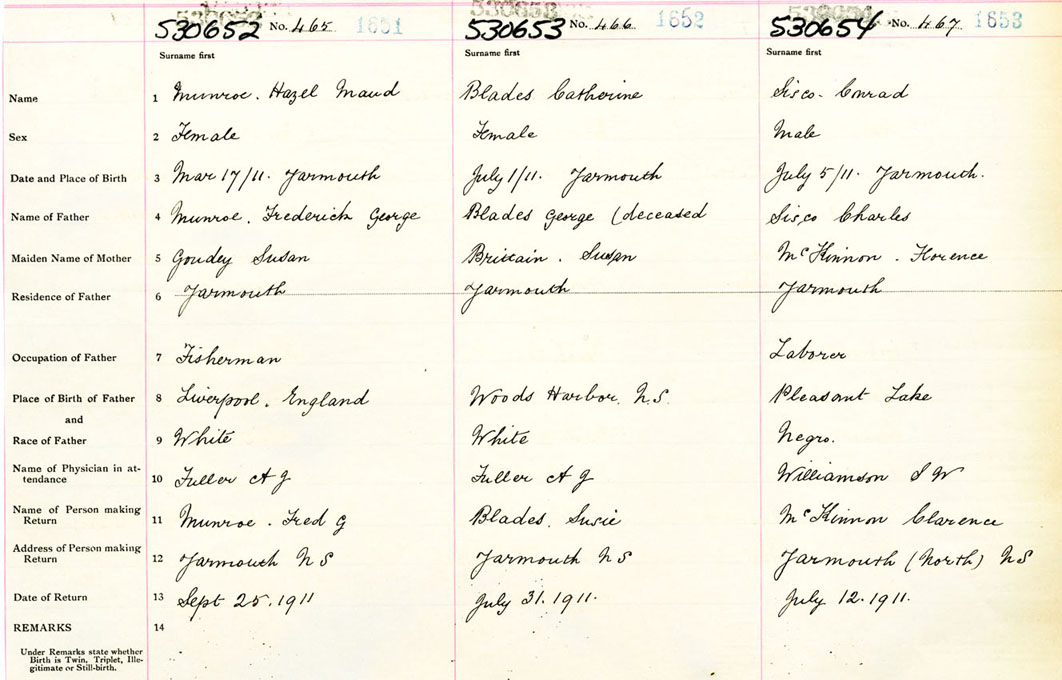 530652 No. 465 1651 530653 No. 466 1652 530654 No. 467 1653
Surname first Surname first Surname first
Name 1 Munroe. Hazel Maud Blades Catherine Sisco. Conrad
Sex 2 Female Female Male
Date and Place of Birth 3 Mar 17/11. Yarmouth July 1/11. Yarmouth July 5/11. Yarmouth.
Name of Father 4 Munroe. Frederick George Blades George (deceased Sisco Charles
Maiden Name of Mother 5 Goudey Susan Brittain. Susan McKinnon. Florence
Residence of Father 6 Yarmouth Yarmouth Yarmouth
Occupation of Father 7 Fisherman Laborer
Place of Birth of Father 8 Liverpool. England Woods Harbor. N.S. Pleasant Lake
and
Race of Father 9 White White Negro.
Name of Physician in at-
tendance 10 Fuller A G Fuller A G Williamson S W
Name of Person making
Return 11 Munroe. Fred G Blades. Susie McKinnon Clarence
Address of Person making
Return 12 Yarmouth N S Yarmouth N S Yarmouth (North) N S
Date of Return 13 Sept 25. 1911 July 31. 1911. July 12. 1911.
REMARKS 14
Under Remarks state whether
Birth is Twin, Triplet, Ille-
gitimate or Still-birth.